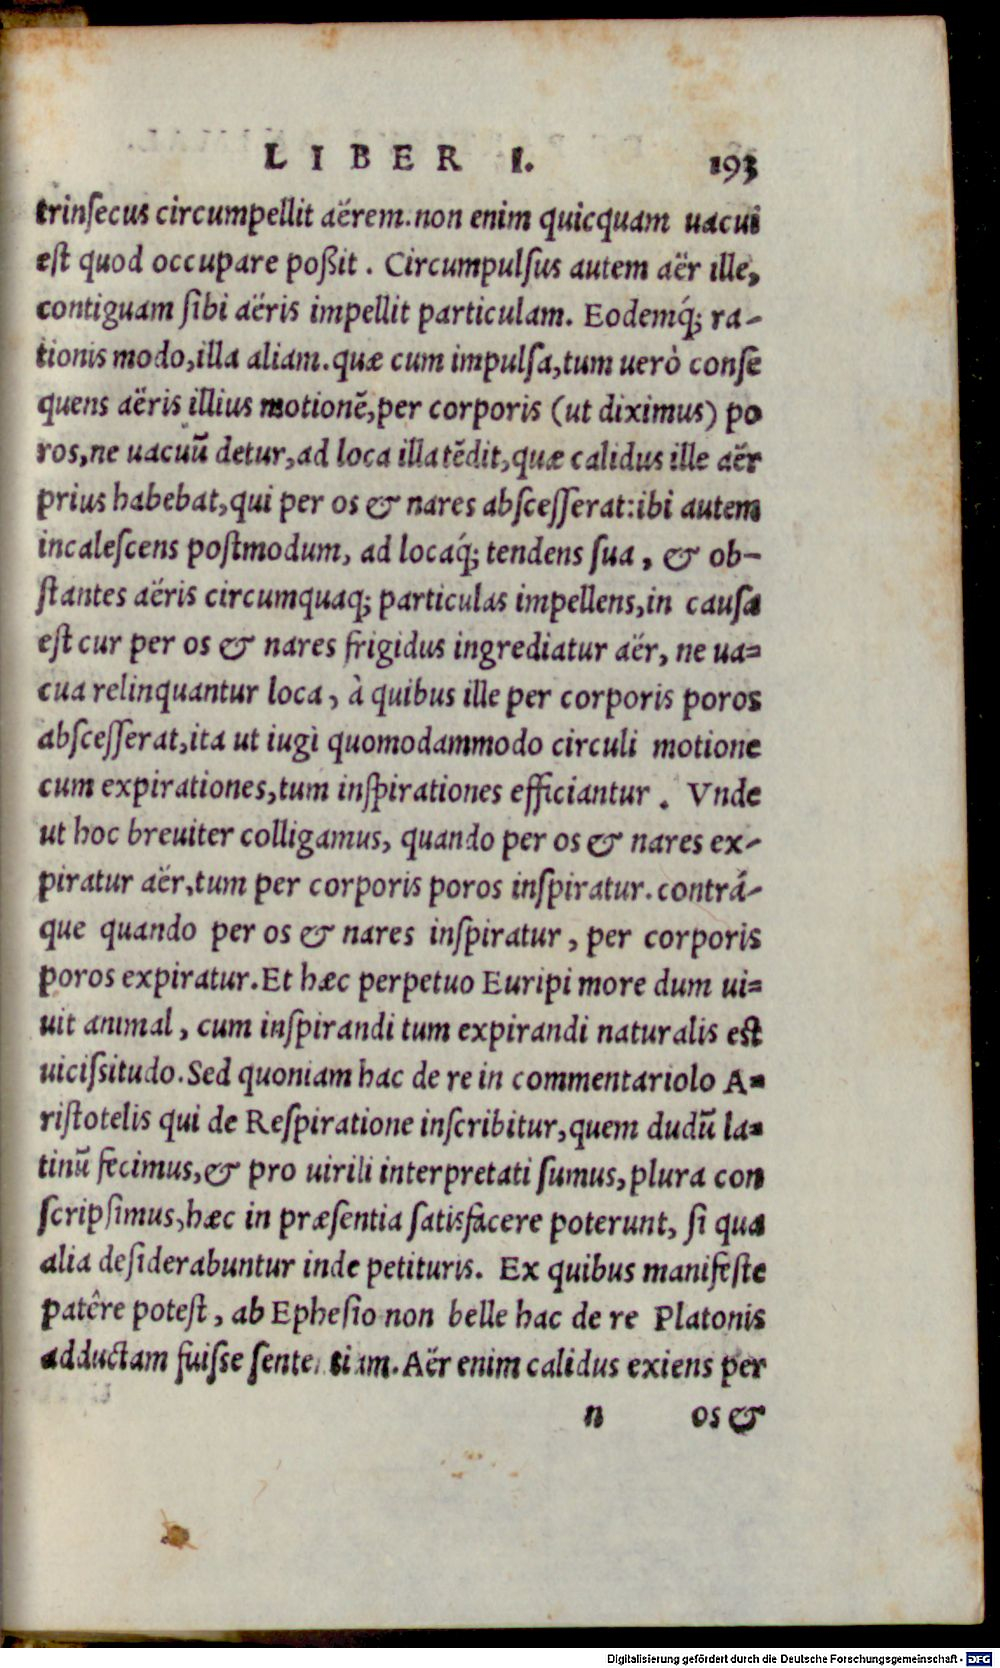 LIBER I. 193
trinſecus circumpellit aërem. non enim quicquam uacui
eſt quod occupare poßit. Circumpulſus autem aër ille,
contiguam ſibi aëris impellit particulam. Eodemq́; ra-
tionis modo, illa aliam. quæ cum impulſa, tum uerò conſe
quens aëris illius motionē, per corporis (ut diximus) po
ros, ne uacuū detur, ad loca illa tēdit, quæ calidus ille aër
prius habebat, qui per os & nares abſceſſerat: ibi autem
incaleſcens poſtmodum, ad locaq́; tendens ſua, & ob-
ſtantes aëris circumquaq; particulas impellens, in cauſa
eſt cur per os & nares frigidus ingrediatur aër, ne ua-
cua relinquantur loca, à quibus ille per corporis poros
abſceſſerat, ita ut iugi quomodammodo circuli motione
cum expirationes, tum inſpirationes efficiantur. Vnde
ut hoc breuiter colligamus, quando per os & nares ex-
piratur aër, tum per corporis poros inſpiratur. contrá-
que quando per os & nares inſpiratur, per corporis
poros expiratur. Et hæc perpetuo Euripi more dum ui-
uit animal, cum inſpirandi tum expirandi naturalis eſt
uiciſsitudo. Sed quoniam hac de re in commentariolo A-
riſtotelis qui de Reſpiratione inſcribitur, quem dudū la-
tinū fecimus, & pro uirili interpretati ſumus, plura con
ſcripſimus, hæc in præſentia ſatisfacere poterunt, ſi qua
alia deſiderabuntur inde petituris. Ex quibus manifeſte
patêre poteſt, ab Epheſio non belle hac de re Platonis
adductam fuiſse ſententiam. Aër enim calidus exiens per
n os &
Digitalisierung gefördert durch die Deutsche Forschungsgemeinschaft - DFG